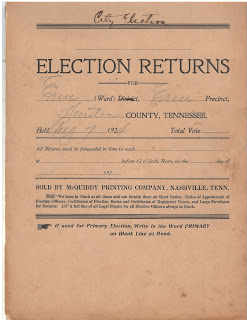 City Election
ELECTION RETURNS
FOR
Erin (Ward) District, Erin Precinct,
Houston COUNTY, TENNESSEE,
Held Aug 7 1924 Total Vote
All Returns must be forwarded in time to reach
at before 12 o'clock, Noon, on the day of
192
SOLD BY McQUIDDY PRINTING COMPANY, NASHVILLE, TENN.
We keep in Stock at all times and can furnish them on Short Notice: Notice of Appointment of
Election Officers, Certificates of Election, Books and Certificates of Registered Voters, and Large Envelopes
for Returns. A full line of all Legal Blanks for all Elective Officers always in Stock.
If used for Primary Election, Write in the Word PRIMARY
on Blank Line at Head.